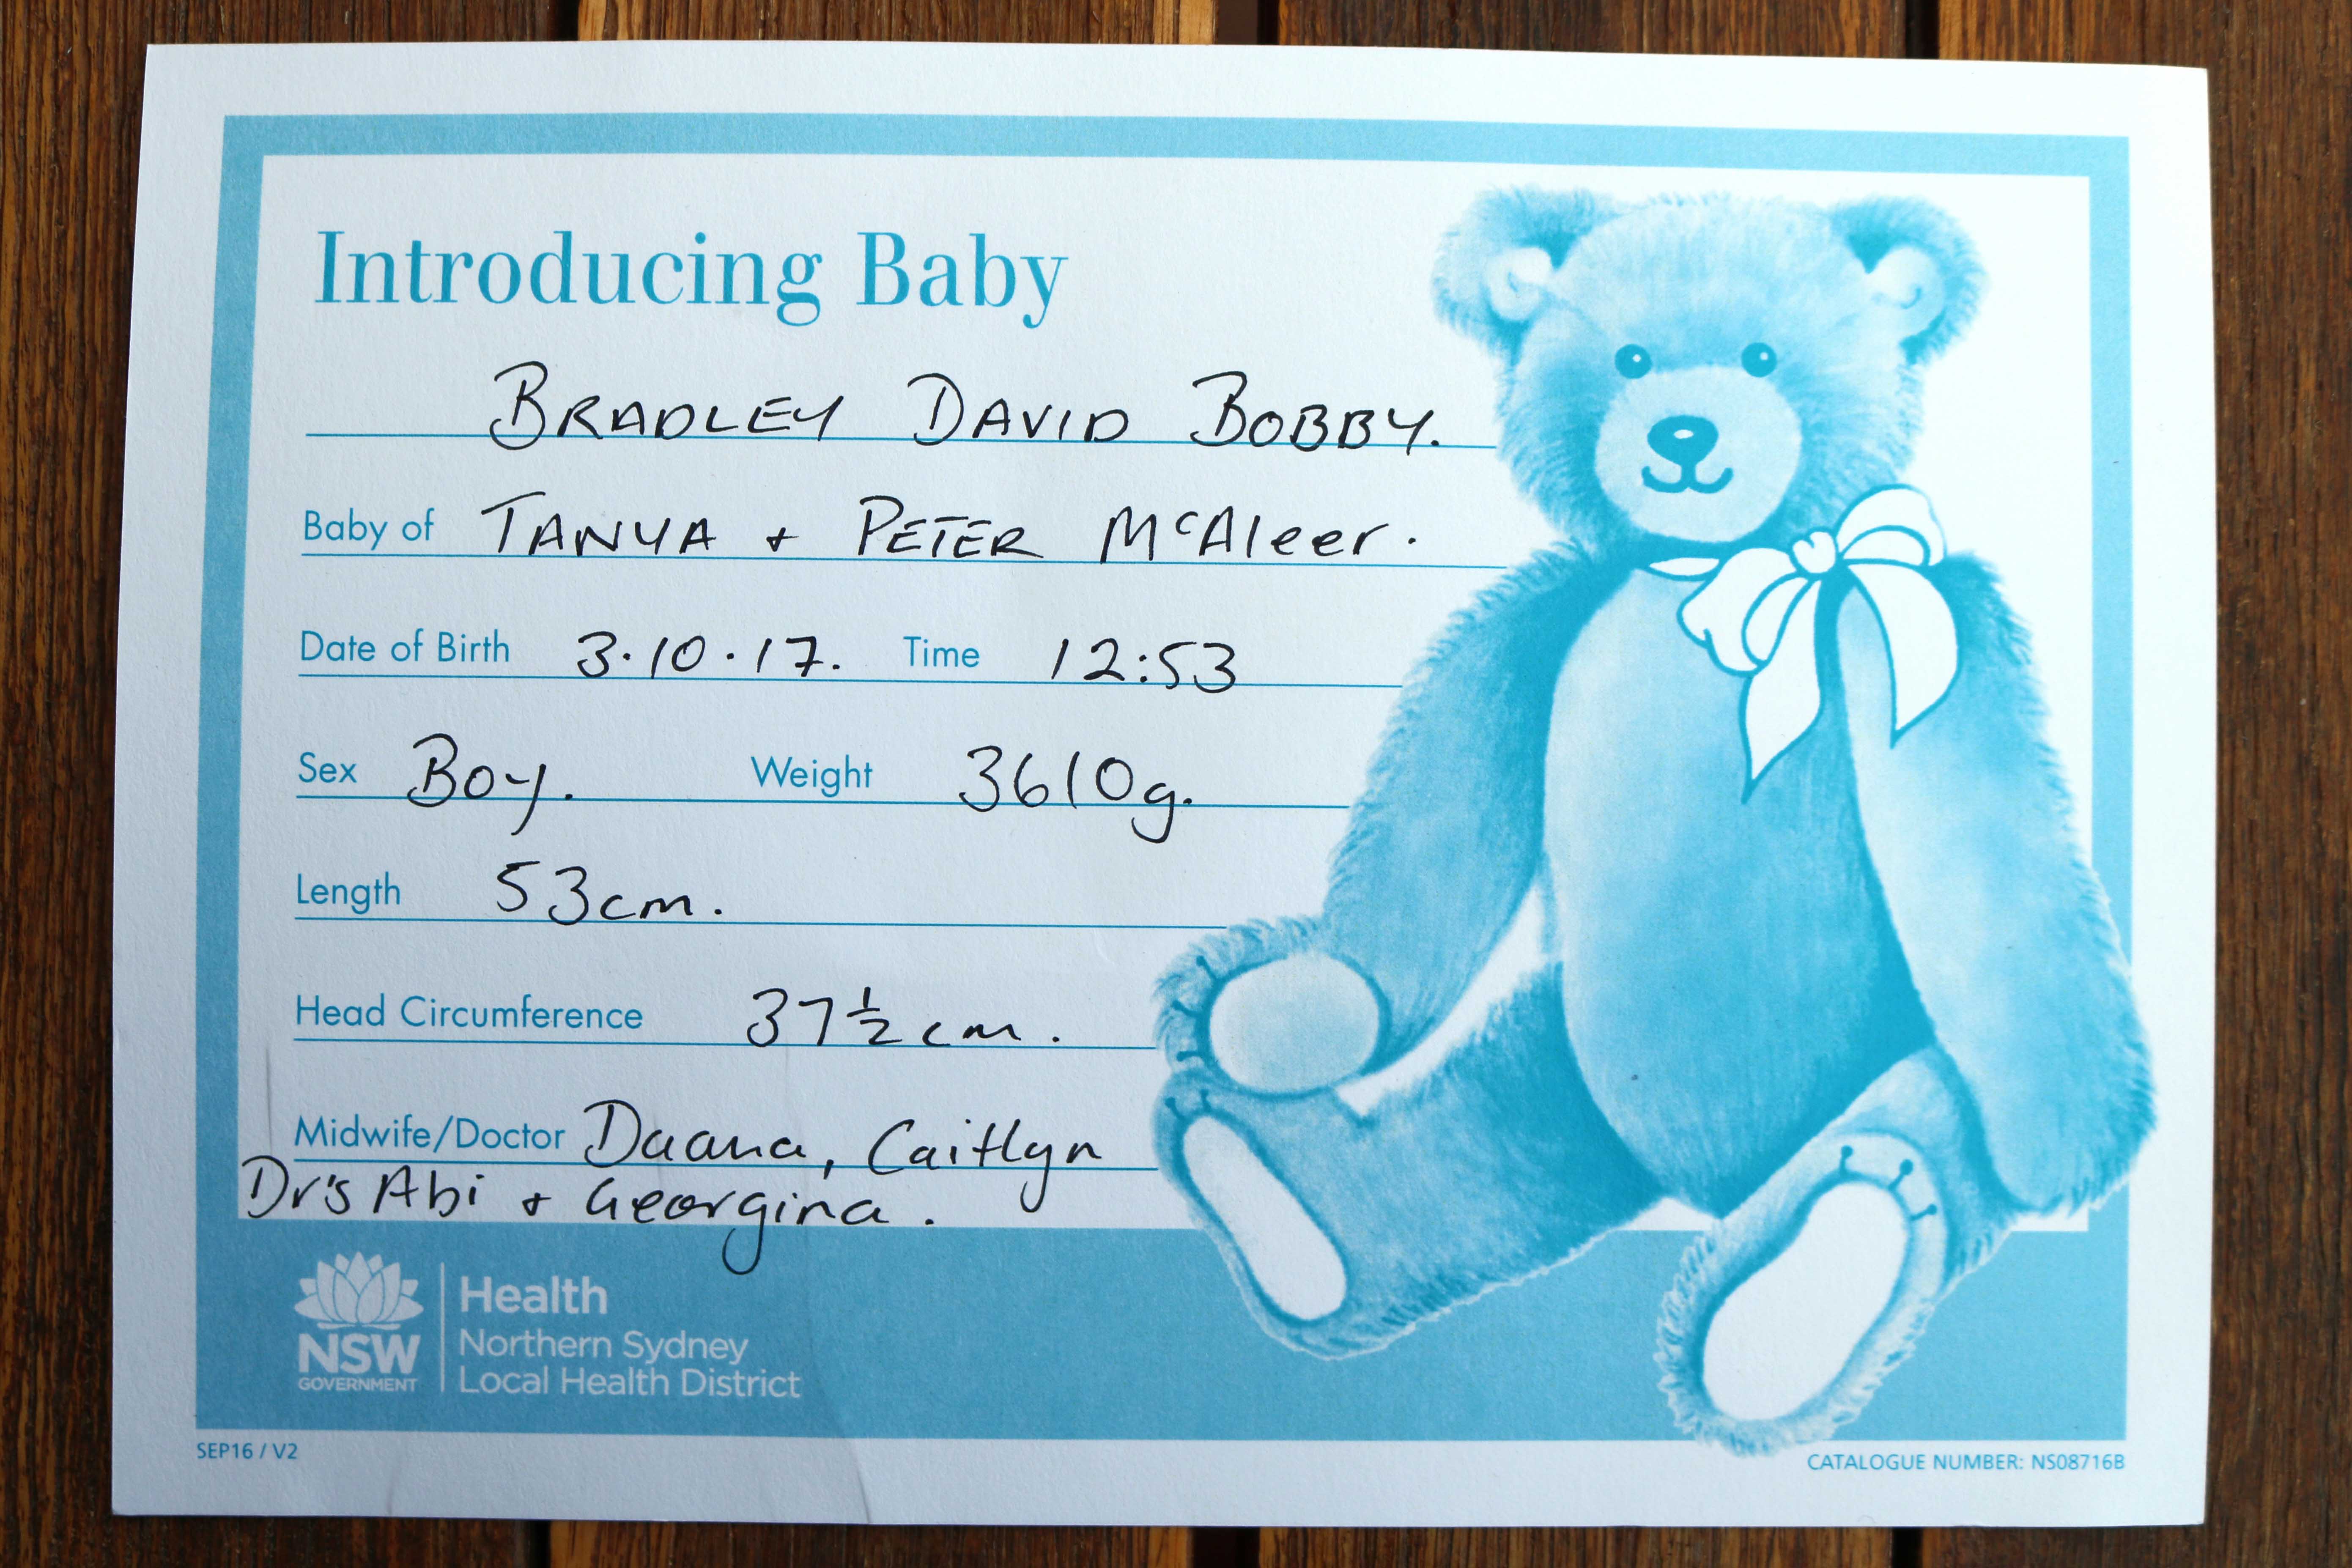 Introducing Baby
BRADLEY DAVID BOBBY.
Baby of TANYA + PETER McAleer.
Date of Birth 3.10.17. Time 12:53
Sex Boy. Weight 3610g.
Length 53cm.
Head Circumference 37½cm.
Midwife/Doctor Duana, Caitlyn
Dr's Abi + Georgina.
Health
NSW
GOVERNMENT
Northern Sydney
Local Health District
SEP16 / V2
CATALOGUE NUMBER: NS08716B